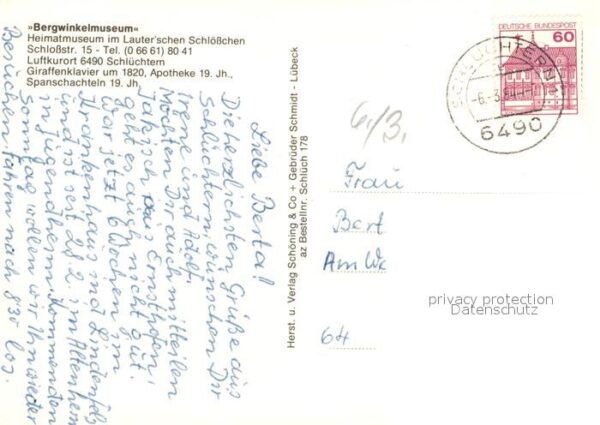 »Bergwinkelmuseum«
Heimatmuseum im Lauter'schen Schlößchen
Schloßstr. 15 - Tel. (0 66 61) 80 41
Luftkurort 6490 Schlüchtern
Giraffenklavier um 1820, Apotheke 19. Jh.,
Spanschachteln 19. Jh.
Liebe Berta!
Die herzlichsten Grüße aus
Schlüchtern wünschen Dir
Irene und Adolf.
Möchten Dir auch mitteilen
Jakisch aus Ernsthofen
geht es auch nicht gut.
War jetzt 6 Wochen im
Krankenhaus und Lindenfels
und ist seit 28.2. im Altenheim
in Jugendheim. Kommenden
Sonntag wollen wir ihn wieder
Besuchen fahren nach 8 35 los.
Herst. u. Verlag Schöning & Co + Gebrüder Schmidt - Lübeck
az Bestellnr. Schlüch 178
DEUTSCHE BUNDESPOST
60
SCHLÜCHTERN 1
6490
6./3.
Frau
Bert
Am Wa
64
privacy protection
Datenschutz